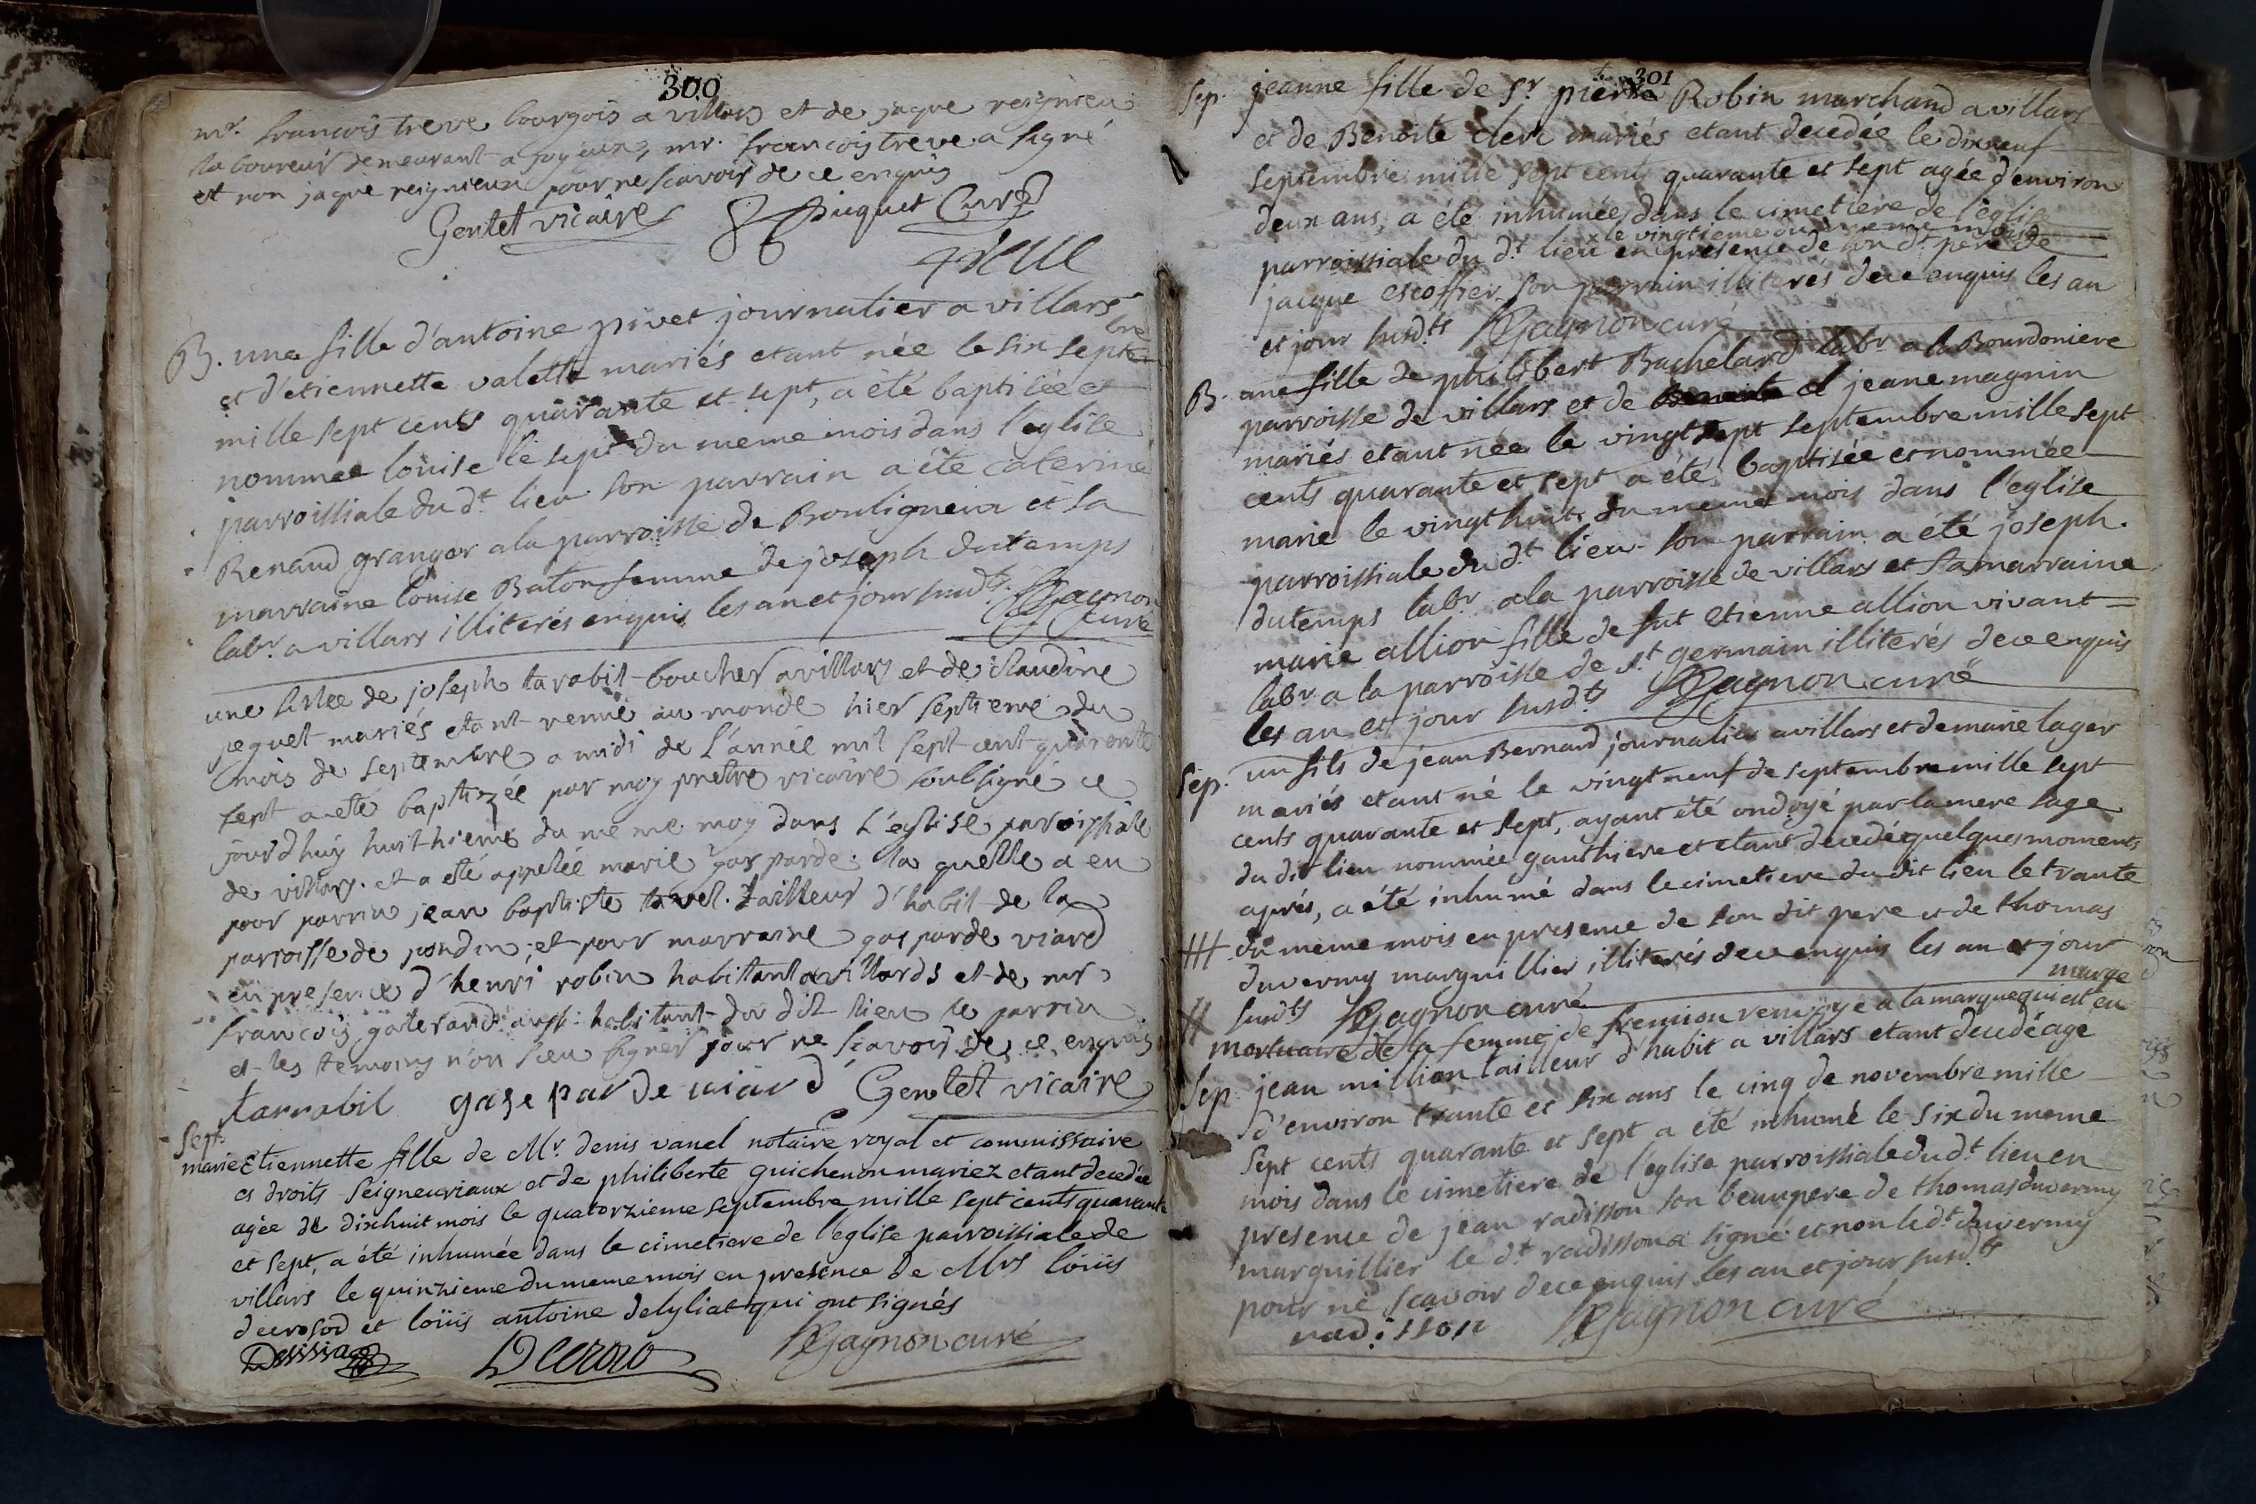 300
mr. francois treve bourgois a villars et de jaque reignieu
laboureur demeurant a joyeux, mr. francois treve a signé
et non jaque reignieux pour ne scavoir de ce enquis
Gentet vicaire Piquet Curé
treve
B. une fille d'antoine pivet journalier a villars
et d'etiennette valette mariés etant née le six septembre
mille sept cents quarante et sept, a été baptisée et
nommée loüise le sept du meme mois dans l'eglise
parroissiale du dt. lieu son parrain a été caterine
Renaud granger a la parroisse de Bouligneux et sa
marraine loüise Baton femme de joseph dutemps
labr. a villars illiterés enquis les an et jour susdts. Gagnon
curé
une fillee de joseph tarabit boucher a villars et de claudine
peguet mariés etant venüe au monde hier septieme du
mois de septembre a midi de L'année mil sept cent quarente
sept a esté baptizée par moy pretre vicaire soubsigné ce
jourdhuy huithieme du meme moy dans L'eglise paroissiale
de villars. et a esté appelée marie gasparde. la quelle a eu
pour parrin jean baptiste tavel. tailleur d'habit de la
paroisse de; et pour marraine gasparde viard
en presence d'henri robin habitant a villards et de mr
francois habitant du dit lieu le parrin
et les temoins n'on sceu signer pour ne scavoir de ce enquis
tarrabit gaspar de viard Gentet vicaire
Sept.
marie Etiennette fille de Mr. denis vanel notaire royal et commissaire
es droits seigneuriaux et de philiberte guichenon mariez etant decedée
agée de dixhuit mois le quatorzieme septembre mille sept cents quarante
et sept, a été inhumée dans le cimetiere de l'eglise parroissiale de
villars le quinzieme du meme mois en presence de Mrs loüis
decrosod et loüis antoine delyliat qui ont signés
Decroso Gagnon curé
301
Sep. jeanne fille de Sr. pierre Robin marchand a villars
et de Benoite clerc mariés etant decedée le dixneuf
septembre mille sept cents quarante et sept agée d'environ
deux ans, a été inhumée dans le cimetiere de l'eglise
le vingtieme du meme mois
parroissiale du dt. lieu en presence de son dt. pere de
jacque escoffier son parrain illiterés de ce enquis les an
et jour susdts Gagnon curé
B. une fille de philibert Bachelard labr. a la Bourdoniere
parroisse de villars et de jeane magnin
mariés etant née le vingtsept septembre mille sept
cents quarante et sept a été baptisée et nommée
marie le vingthuit du meme mois dans l'eglise
parroissiale du dt. lieu son parrain a été joseph
dutemps labr. a la parroisse de villars et sa marraine
marie allion fille de fut Etienne allion vivant
labr. a la parroisse de st. germain illiterés de ce enquis
les an et jour susdts Gagnon curé
Sep. un fils de jean Bernard journalier a villars et de marie lager
mariés etant né le vingt neuf de septembre mille sept
cents quarante et sept, ayant été ondoyé par la mere sage
du dit lieu nommée gauthiere et etant decedé quelques moments
aprés, a été inhumé dans le cimetiere du dit lieu le trante
du meme mois en presence de son dit pere et de thomas
duverny marguillier illiterés de ce enquis les an et jour
susdts Gagnon curé
marge
mortuaire de la femme de fremion renvoyé a la marque qui est en
Sep. jean million tailleur d'habit a villars etant decedé agé
d'environ trante et six ans le cinq de novembre mille
sept cents quarante et sept a été inhumé le six du meme
mois dans le cimetiere de l'eglise parroissiale du dt. lieu en
presence de jean radisson son beaupere de thomas duverny
marguillier le dt. radisson a signé et non le dt. duverny
pour ne scavoir de ce enquis les an et jour susdts
radisson Gagnon curé